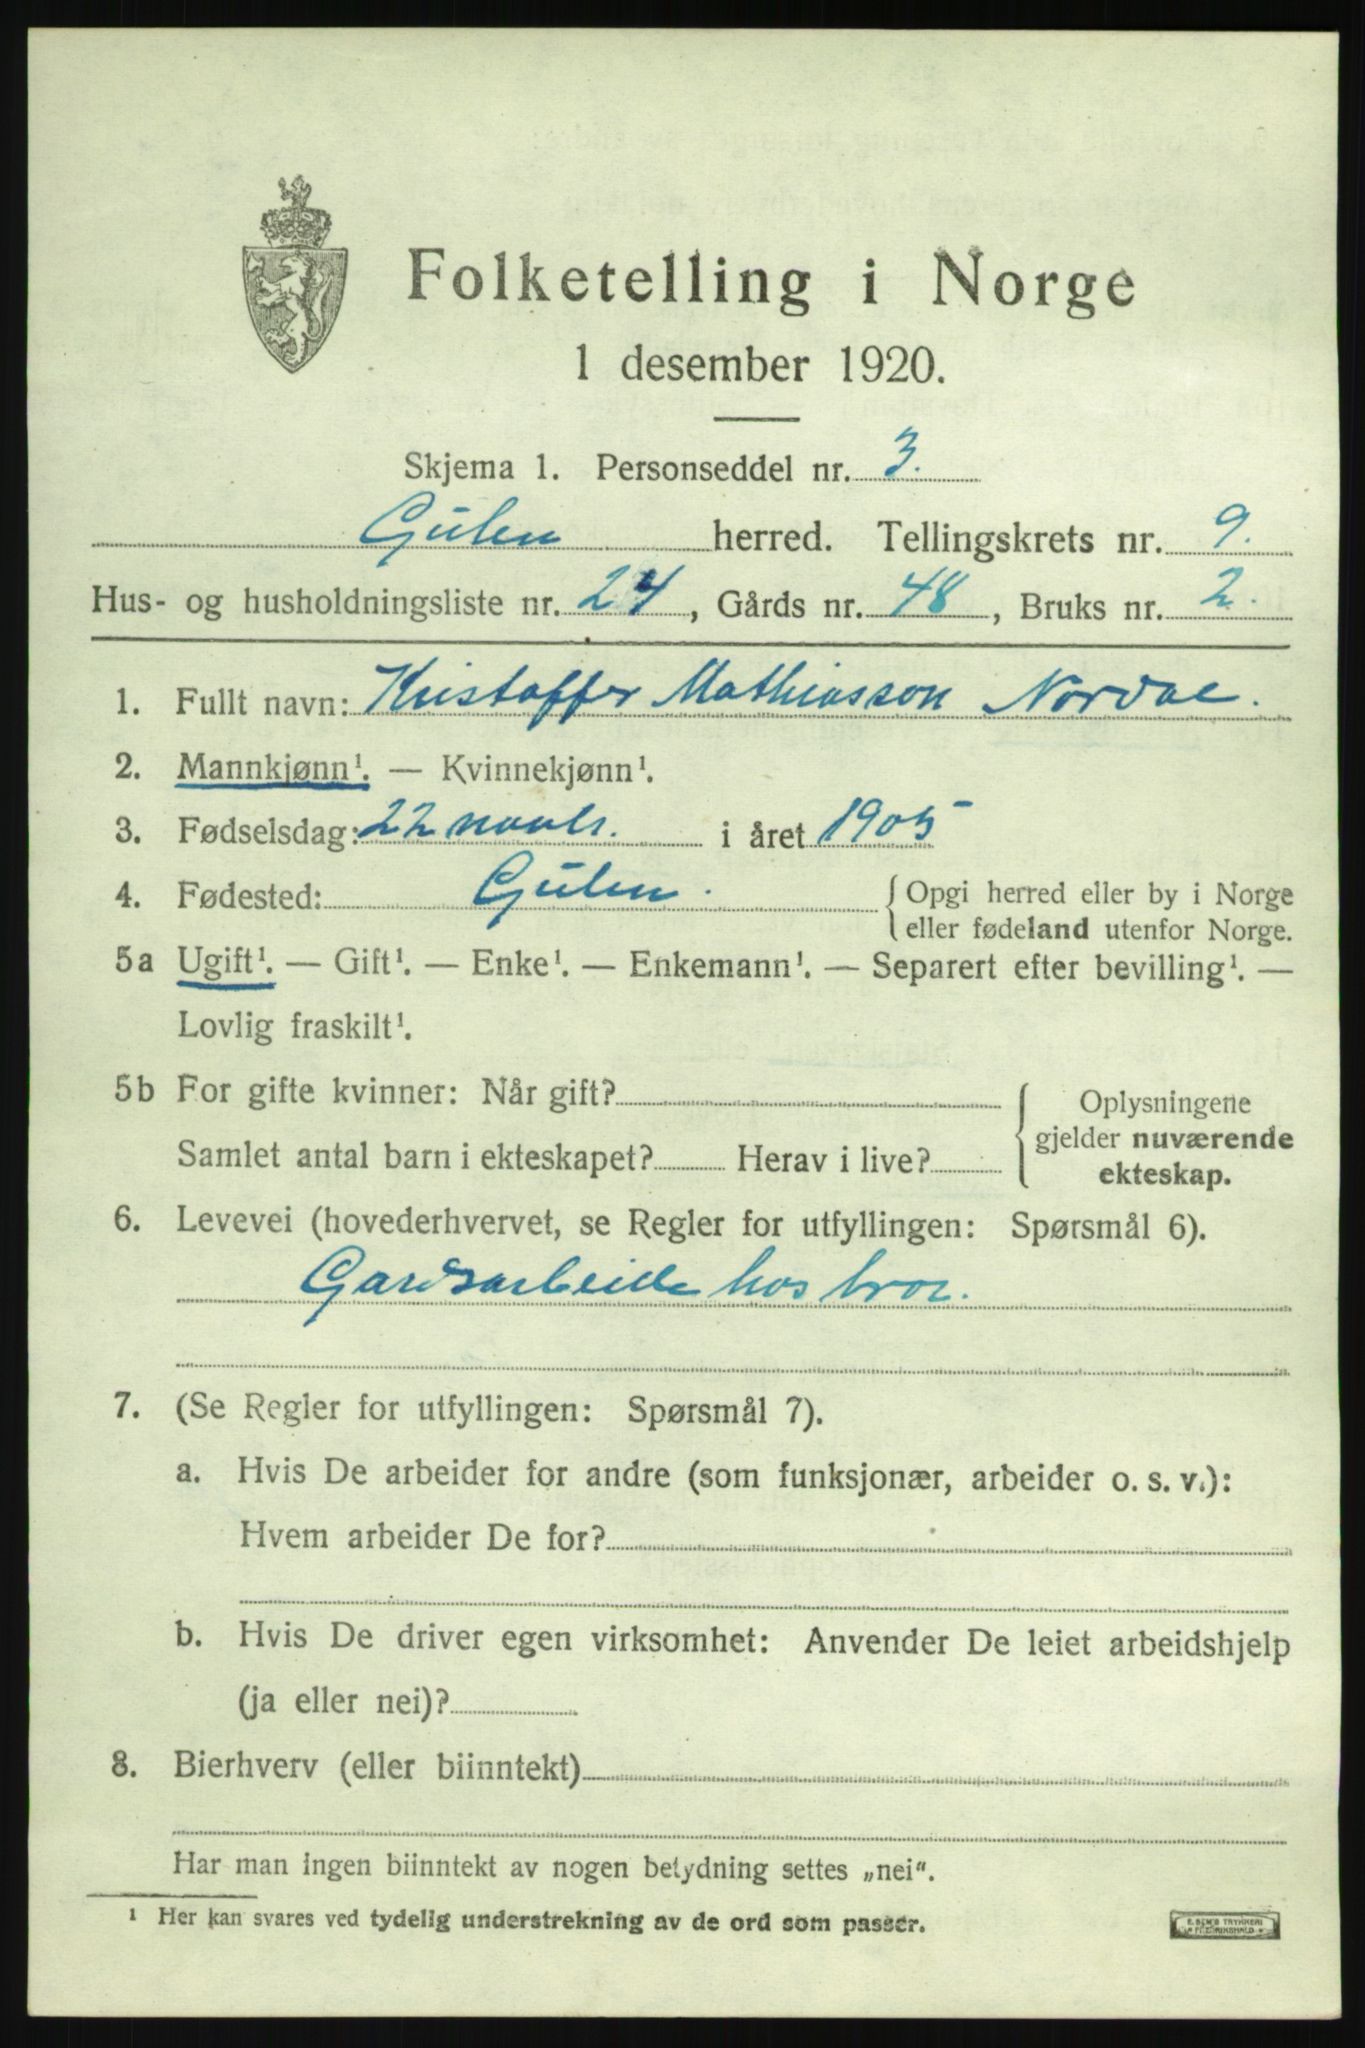 Folketelling i Norge
1 desember 1920.
Skjema 1. Personseddel nr. 3.
Gulen herred. Tellingskrets nr. 9.
Hus- og husholdningsliste nr. 24, Gårds nr. 48, Bruks nr. 2.
1. Fullt navn: Kristoffer Mathiasson
2. Mannkjønn¹. — Kvinnekjønn¹.
3. Fødselsdag: 22 novbr. i året 1905
4. Fødested: Gulen. { Opgi herred eller by i Norge
eller fødeland utenfor Norge.
5a Ugift¹. — Gift¹. — Enke¹. — Enkemann¹. — Separert efter bevilling¹. —
Lovlig fraskilt¹.
5b For gifte kvinner: Når gift?
Samlet antal barn i ekteskapet? Herav i live?
Oplysningene
gjelder nuværende
ekteskap.
6. Levevei (hovederhvervet, se Regler for utfyllingen: Spørsmål 6).
Gardsarbeide hos bror.
7. (Se Regler for utfyllingen: Spørsmål 7).
a. Hvis De arbeider for andre (som funksjonær, arbeider o. s. v.):
Hvem arbeider De for?
b. Hvis De driver egen virksomhet: Anvender De leiet arbeidshjelp
(ja eller nei)?
8. Bierhverv (eller biinntekt)
Har man ingen biinntekt av nogen betydning settes „nei“.
¹ Her kan svares ved tydelig understrekning av de ord som passer.